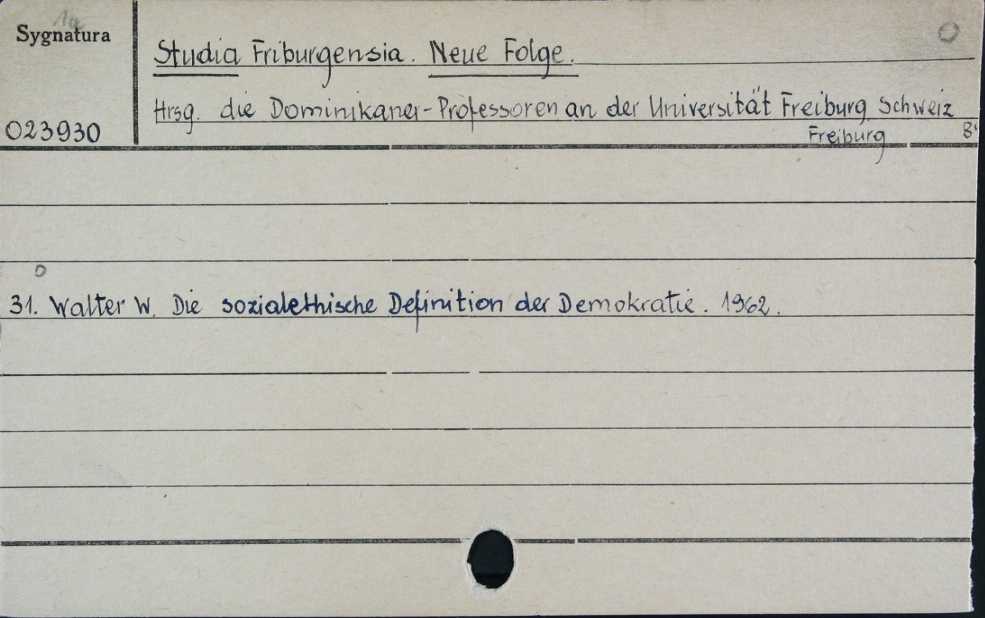 Sygnatura
Studia Friburgensia. Neue Folge.
Hrsg. die Dominikaner-Professoren an der Universität Freiburg Schweiz
023930
Freiburg 8°
31. Walter W. Die sozialethische Definition der Demokratie. 1962.